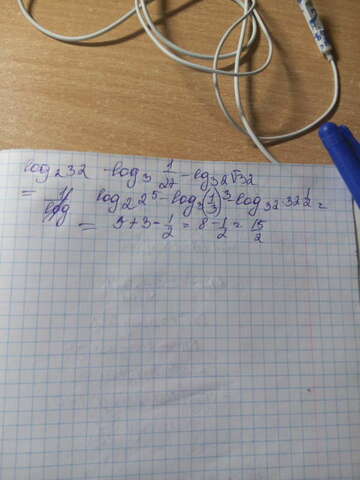 log₂32 - log₃ 1/27 - lg₃₂√32
= log₂2⁵ - log₃(1/3)³ - log₃₂ 32^1/2 =
= 5 + 3 - 1/2 = 8 - 1/2 = 15/2